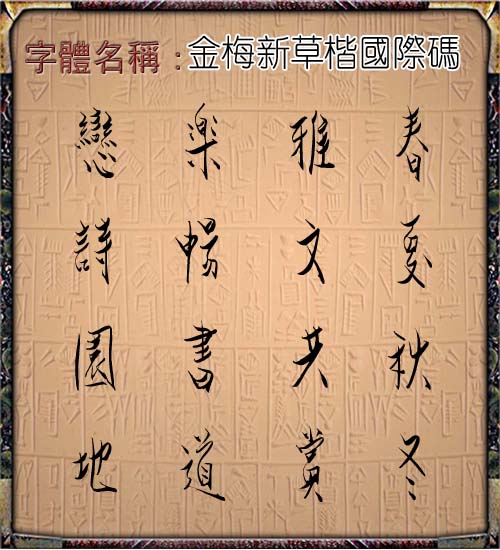 字體名稱：金梅新草楷國際碼
春夏秋冬
雅文共賞
樂暢書道
戀詩園地